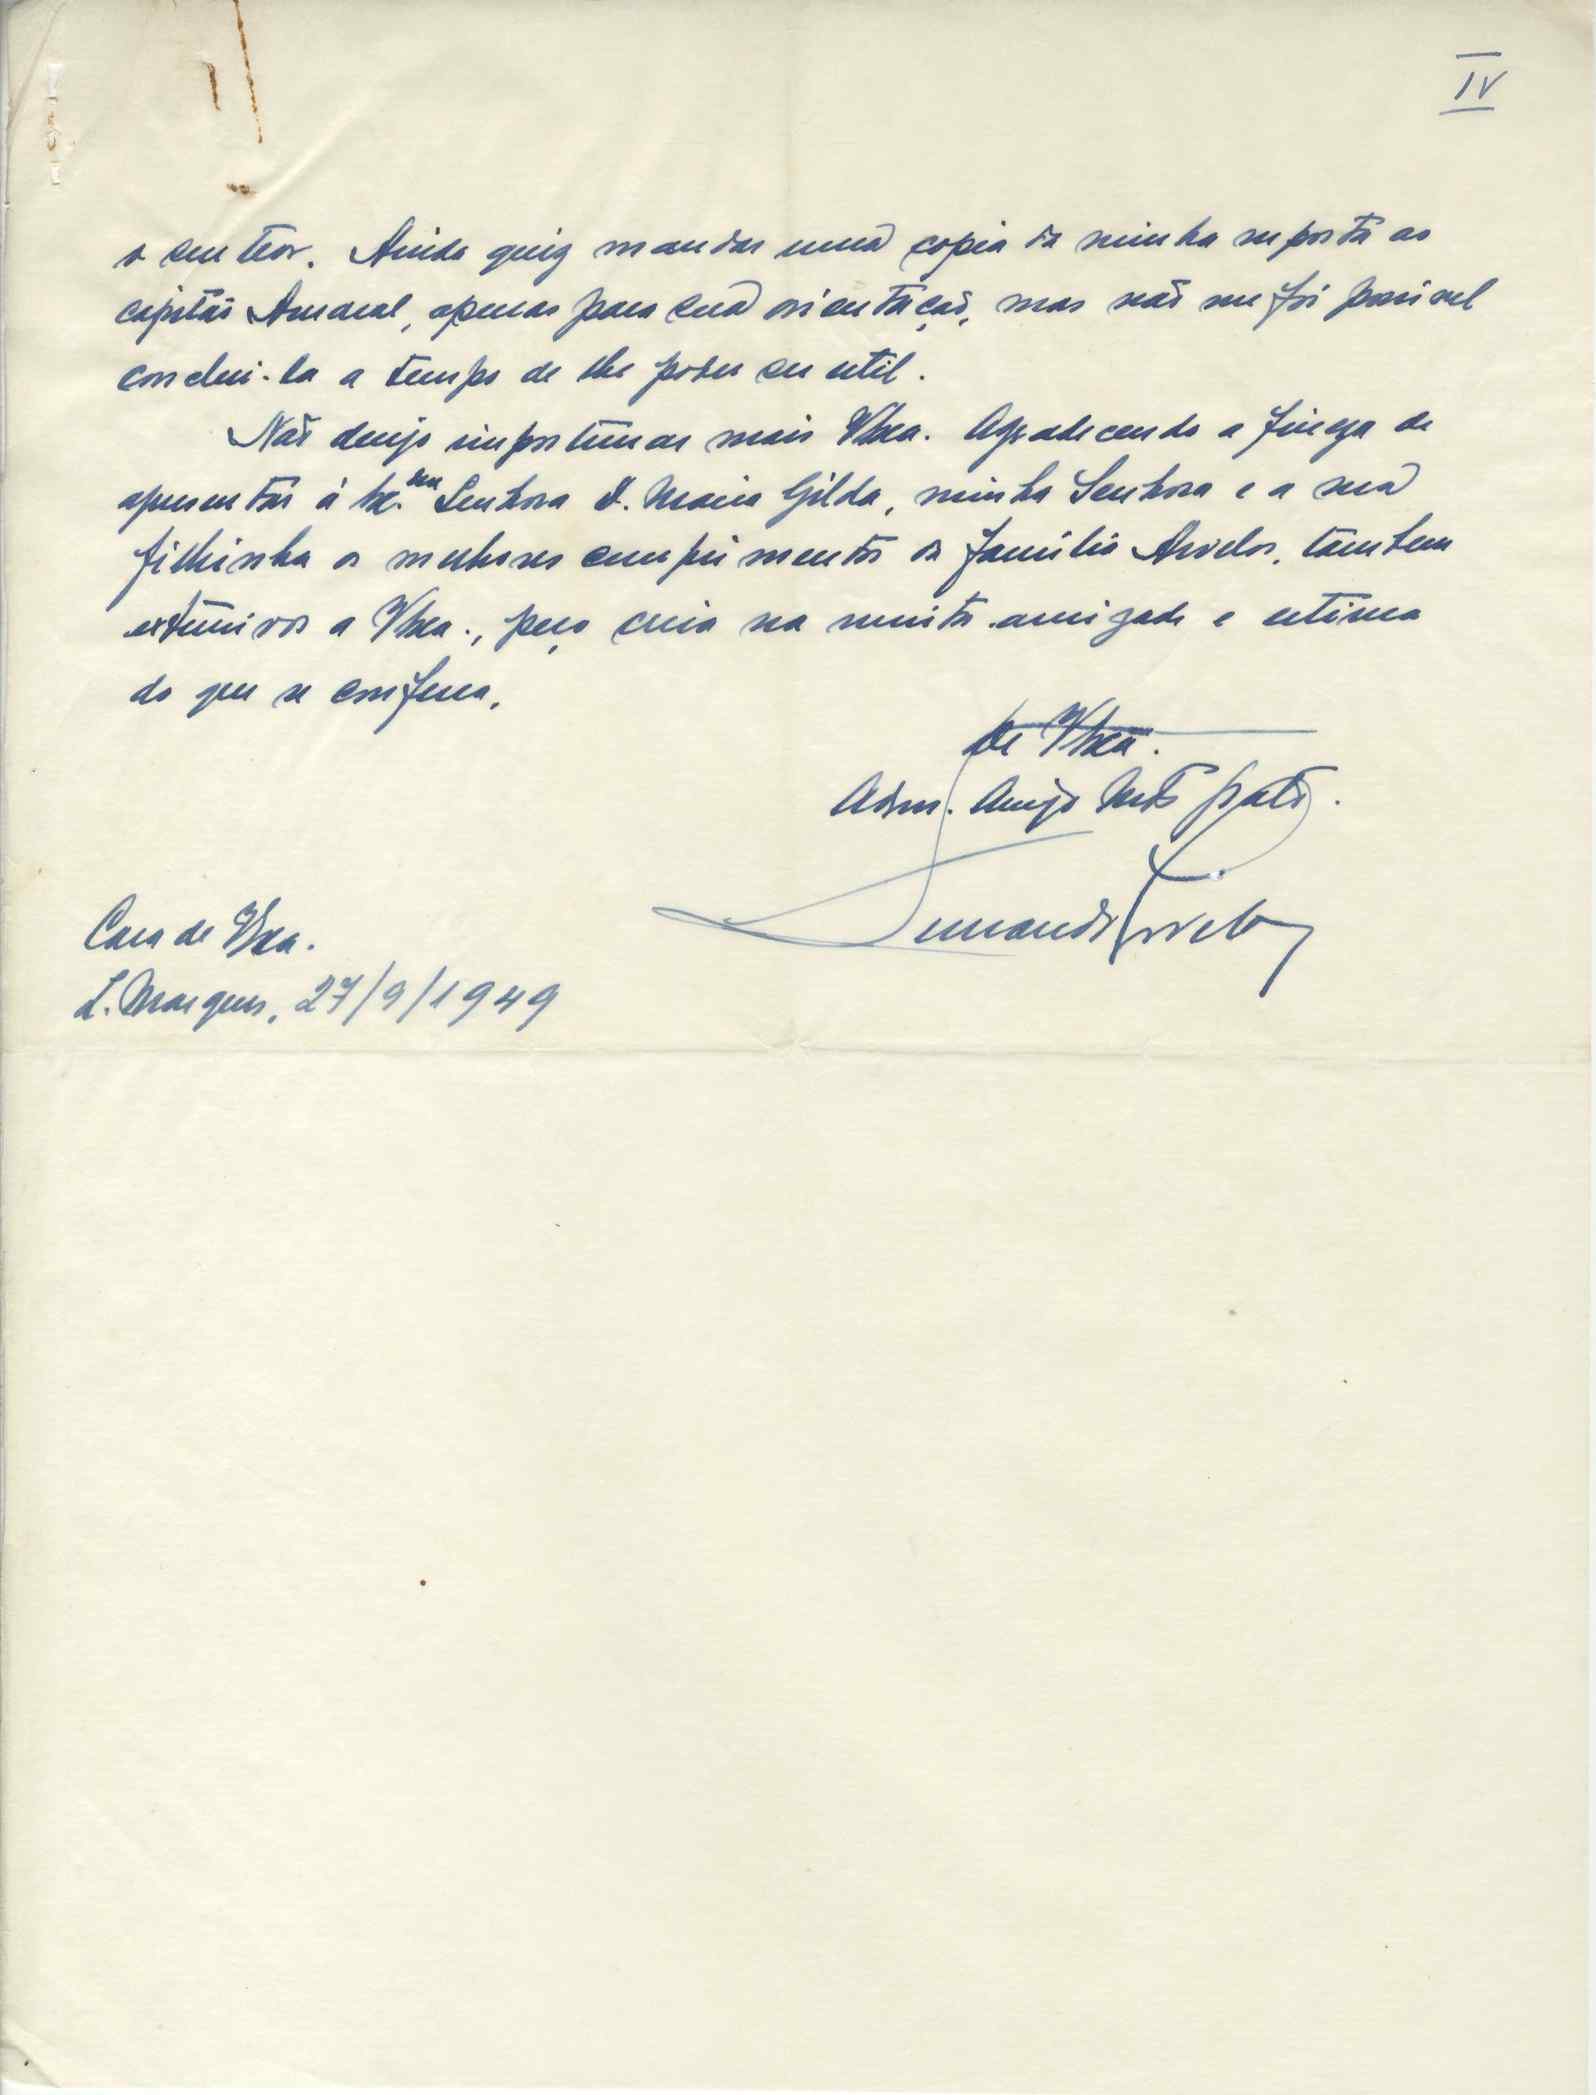 IV
o seu teor. Ainda quiz mandar uma copia da minha resposta ao
capitão Amaral, apenas para sua orientação, mas não me foi possivel
conclui-la a tempo de lhe poder ser util.
Não desejo importunar mais VExa. Agradecendo a fineza de
apresentar á Ex.ma Senhora D. Maria Gilda, minha Senhora e a sua
filhinha os melhores cumprimentos da familia Arvelos, tambem
extensivos a VExa., peço creia na muita amizade e estima
do que se confessa,
De VExa.
Adm. Amigo Mtº grato.
Fernando Arvelos
Casa de VExa.
L. Marques, 27/9/1949